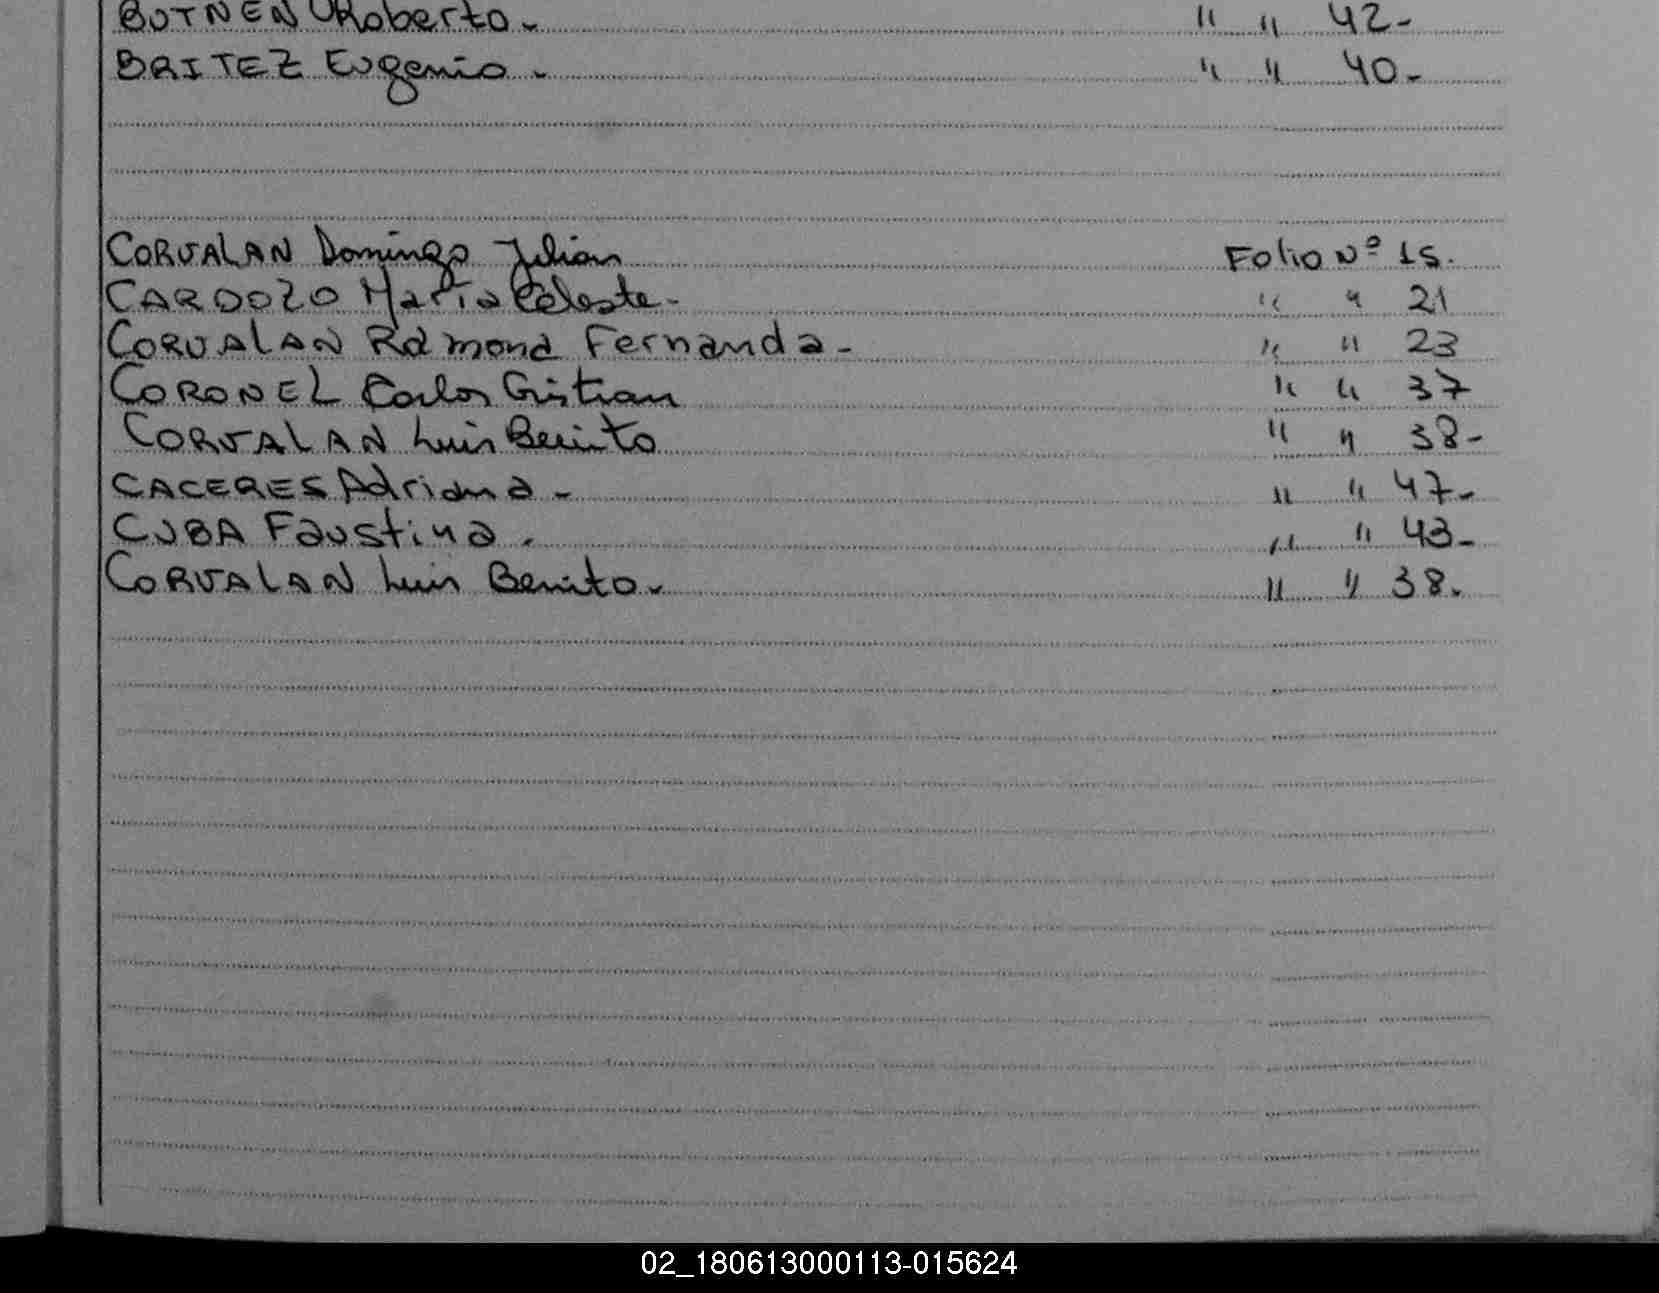 BRITEZ Eugenio. " " 40-
CORVALAN Domingo Julian Folio Nº 15.
CARDOZO Maria Celeste- " " 21
CORVALAN Ramona Fernanda- " " 23
CORONEL Carlos Cristian " " 37
CORVALAN Luis Benito " " 38-
CACERES Adriana- " " 47-
CUBA Faustina. " " 43-
CORVALAN Luis Benito- " " 38.
02_180613000113-015624